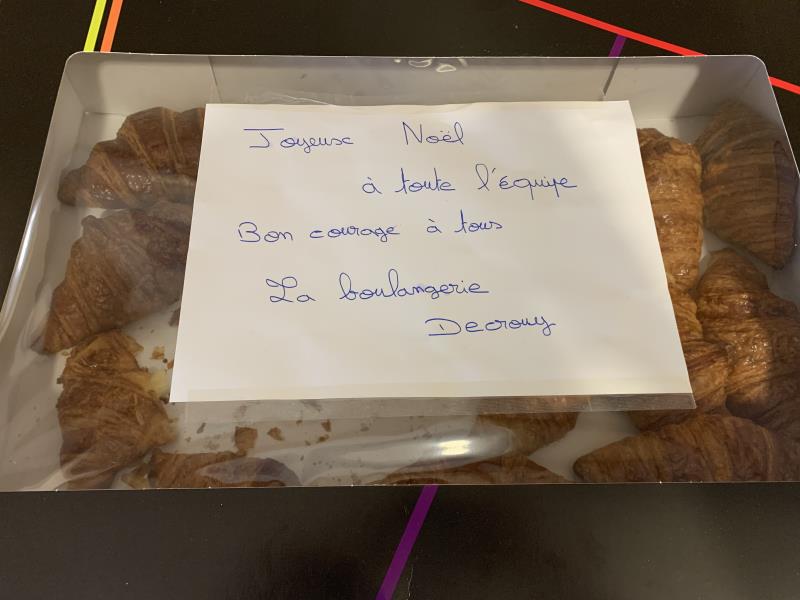 Joyeuse Noël
à toute l'équipe
Bon courage à tous
La boulangerie
Decrouy